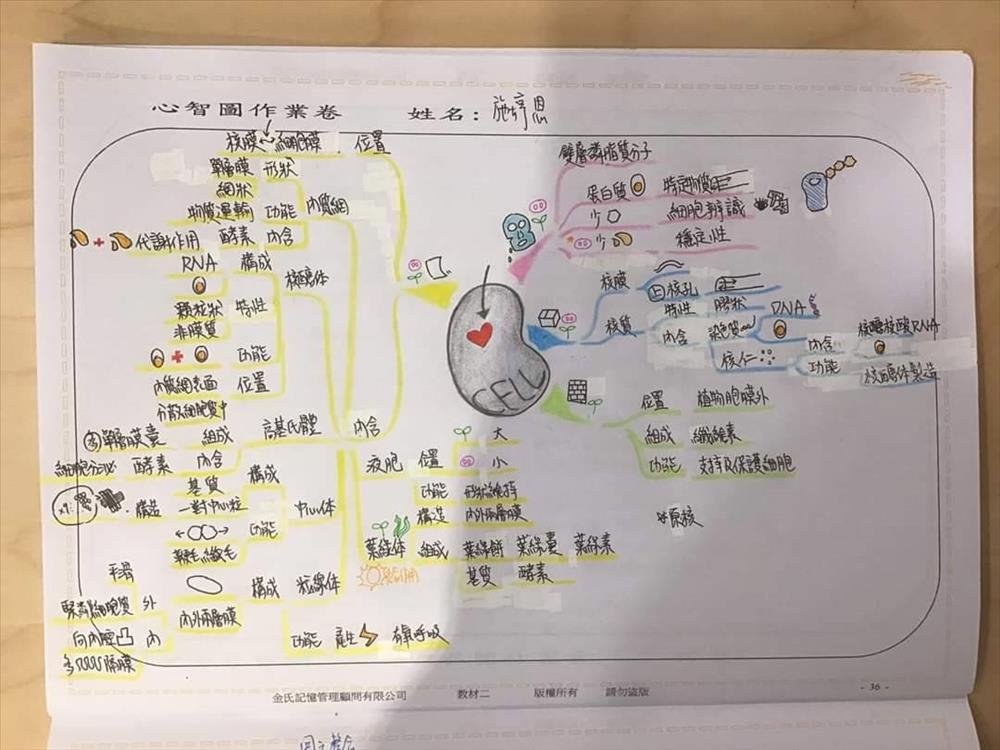 心智圖作業卷 姓名：施婷恩
核膜 細胞膜 位置
單層膜 形狀
網狀
物質運輸 功能 內質網
代謝作用 酵素 內含
RNA 構成 核醣體
顆粒狀 特性
非膜質
功能
內質網表面 位置
分散細胞質中
單層膜囊 組成 高基氏體 內含
細胞分泌 酵素 內含
基質 構成
x9 構造 一對中心粒 中心體
功能
鞭毛纖毛
平滑
構成 粒線體
緊貼細胞質 外
內外兩層膜
向內腔凸 內
多 隔膜
功能 產生 有氧呼吸
CELL
雙層磷脂質分子
蛋白質 特定物質
少 細胞辨識
少 穩定性
核膜 核孔
核質 特性 膠狀
內含 染色質 DNA
核仁 內含 核醣核酸RNA
功能 核醣體製造
位置 植物細胞膜外
組成 纖維素
功能 支持及保護細胞
液胞 位置 大
小
功能 形狀維持
構造 內外兩層膜
葉綠體 組成 葉綠餅 葉綠囊 葉綠素
基質 酵素
原核
金氏記憶管理顧問有限公司 教材二 版權所有 請勿盜版
- 36 -